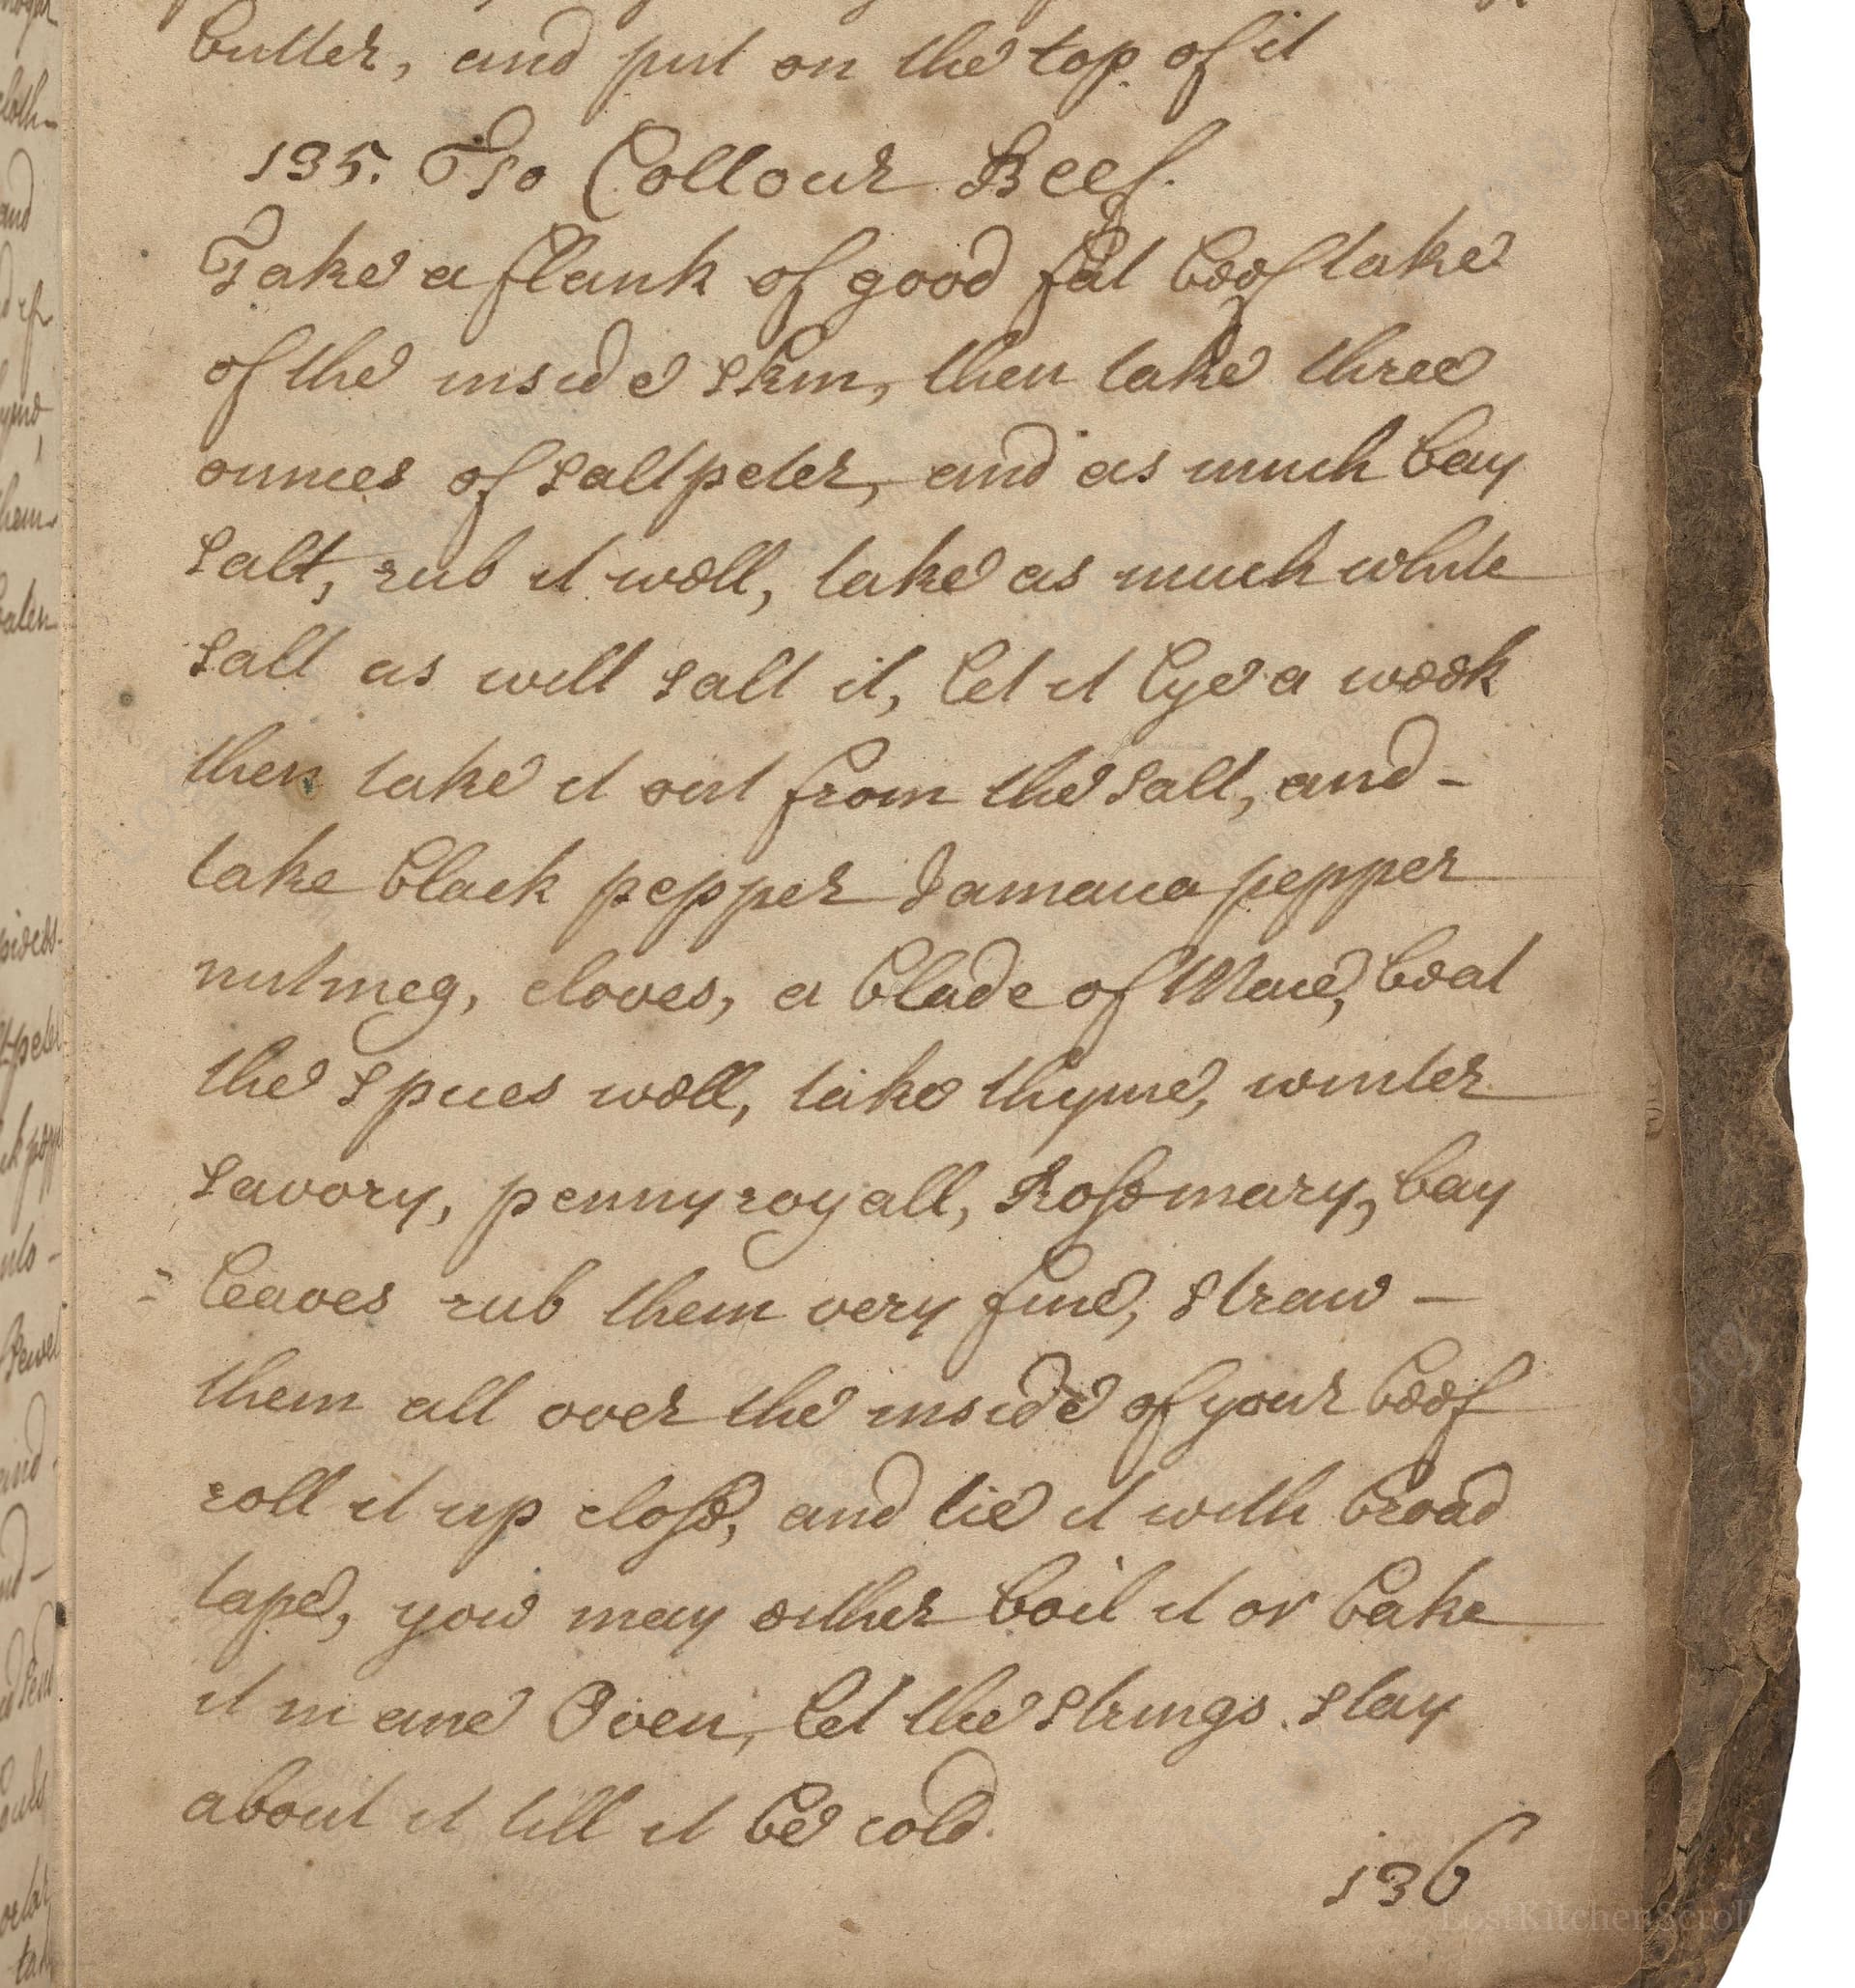 butter, and put on the top of it
135. To Collour Beef.
Take a flank of good fat beef take
of the inside skin, then take three
ounces of saltpeter, and as much bay
salt, rub it well, take as much white
salt as will salt it, let it lye a week
then take it out from the salt, and -
take black pepper Jamaica pepper
nutmeg, cloves, a blade of Mace, beat
the spices well, take thyme, winter
savory, pennyroyall, Rosemary, bay
leaves rub them very fine, straw -
them all over the inside of your beef
roll it up close, and tie it with broad
tape, you may either boil it or bake
it in ane Oven, let the strings stay
about it till it be cold.
136
LostKitchenScroll